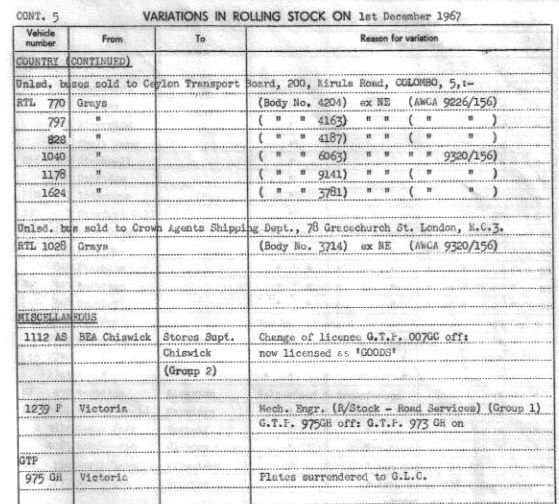 CONT. 5 VARIATIONS IN ROLLING STOCK ON 1st December 1967
Vehicle number From To Reason for variation
COUNTRY (CONTINUED)
Unlsd. buses sold to Ceylon Transport Board, 200, Kirula Road, COLOMBO, 5,:-
RTL 770 Grays (Body No. 4204) ex NE (AWCA 9226/156)
797 " ( " " 4163) " " ( " " )
828 " ( " " 4187) " " ( " " )
1040 " ( " " 6063) " " ( " 9320/156)
1178 " ( " " 9141) " " ( " " )
1624 " ( " " 3781) " " ( " " )
Unlsd. bus sold to Crown Agents Shipping Dept., 78 Gracechurch St. London, E.C.3.
RTL 1028 Grays (Body No. 3714) ex NE (AWCA 9320/156)
MISCELLANEOUS
1112 AS BEA Chiswick Stores Supt. Change of licence G.T.P. 007GC off:
Chiswick now licensed as 'GOODS'
(Group 2)
1239 F Victoria Mech. Engr. (R/Stock - Road Services) (Group 1)
G.T.P. 975GH off: G.T.P. 973 GH on
GTP
975 GH Victoria Plates surrendered to G.L.C.